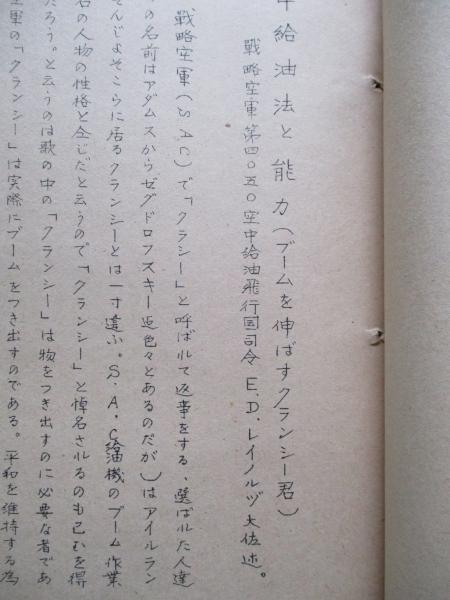 給油法と能力(ブームを伸ばすクランシー君)
戦略空軍第四〇五〇空中給油飛行団司令E.D.レイノルヅ大佐述。
戦略空軍(SAC)で「クラシー」と呼ばれて返事をする、選ばれた人達
の名前はアダムスからゼグドロフスキー迄色々とあるのだが)はアイルラン
そんじよそこらに居るクランシーとは一寸違ふ。S.A.C給油機のブーム作業
名の人物の性格と念じだと云うので「クランシー」と悼名されるのも已むを得
だろう。と云うのは歌の中の「クランシー」は物をつき出すのに必要な者であ
空軍の「クランシー」は実際にブームをつき出すのである。平和を維持する為